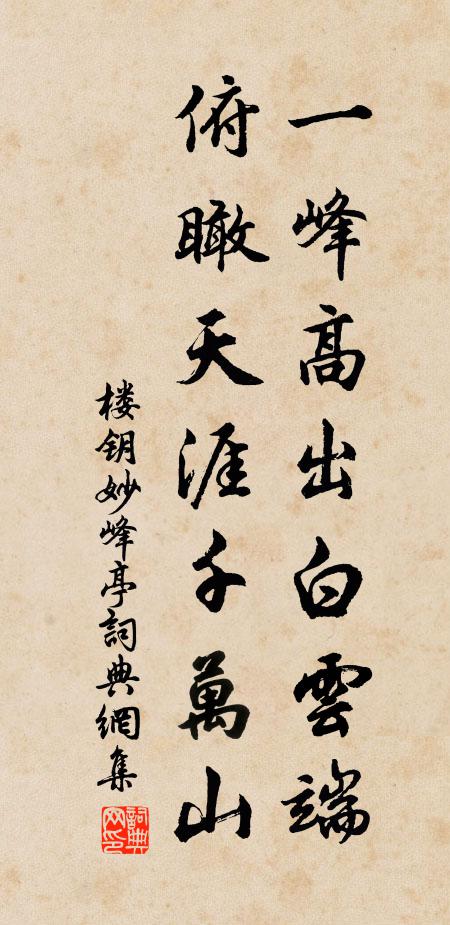 一峰高出白雲端
俯瞰天涯千萬山
楼钥妙峰亭詞典網集
詞典网印